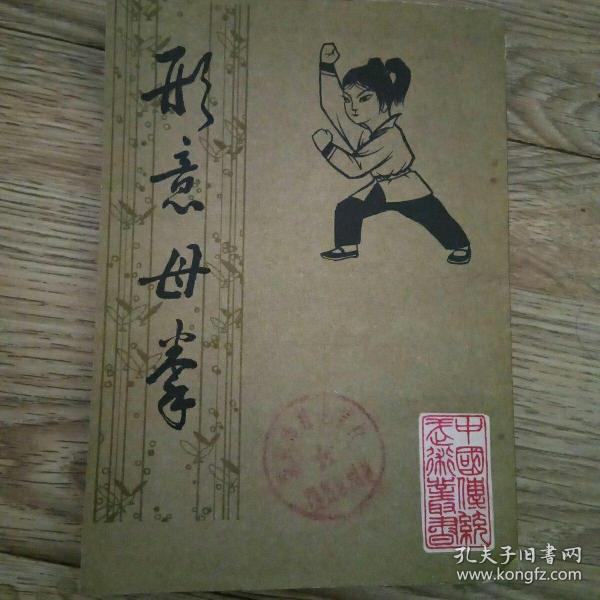 形意母拳
中國傳統
武術叢書
孔夫子旧書网
www.kongfz.com